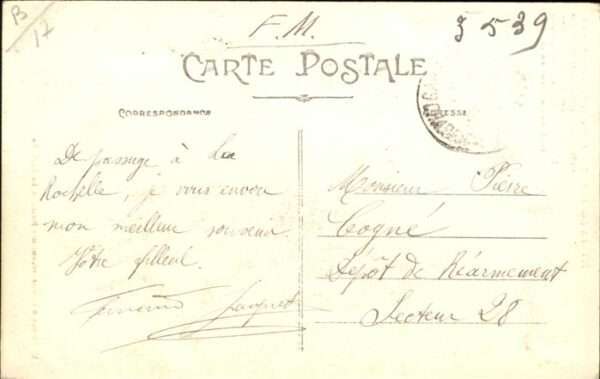 B
17
F. M.
3 539
CARTE POSTALE
CORRESPONDANCE
De passage à La
Rochelle, je vous envoie
mon meilleur souvenir.
Vôtre filleul.
Fernand Jacquet
Monsieur Pierre
Cogné
Dépôt de Réarmement
Secteur 28